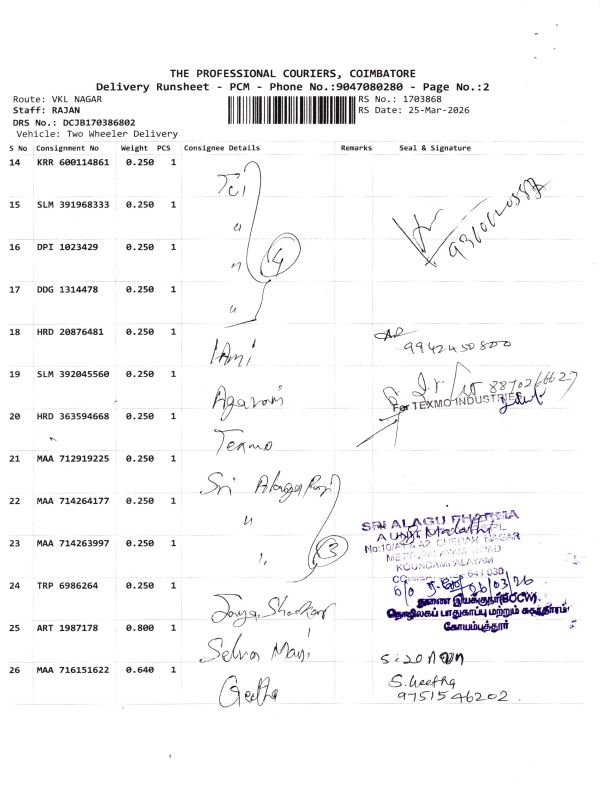 THE PROFESSIONAL COURIERS, COIMBATORE
Delivery Runsheet - PCM - Phone No.:9047080280 - Page No.:2
Route: VKL NAGAR
RS No.: 1703868
Staff: RAJAN
RS Date: 25-Mar-2026
DRS No.: DCJB170386802
Vehicle: Two Wheeler Delivery
S No Consignment No Weight PCS Consignee Details Remarks Seal & Signature
14 KRR 600114861 0.250 1 Tci
15 SLM 391968333 0.250 1 "
16 DPI 1023429 0.250 1 " 4
17 DDG 1314478 0.250 1 "
18 HRD 20876481 0.250 1
9942450800
19 SLM 392045560 0.250 1 Agaram
8870266627
For TEXMO INDUSTRIES
20 HRD 363594668 0.250 1 Texmo
21 MAA 712919225 0.250 1 Sri
22 MAA 714264177 0.250 1 "
SRI ALAGU PHARMA
23 MAA 714263997 0.250 1 " 3
NAGAR
ROAD
KOUNDAMPALAYAM
641 030
24 TRP 6986264 0.250 1
26/03/26
துணை இயக்குநர்(BOCW)
தொழிலகப் பாதுகாப்பு மற்றும் சுகாதாரம்
கோயம்புத்தூர்
25 ART 1987178 0.800 1 Selva Mani
5:20
26 MAA 716151622 0.640 1 Geetha
S. Geetha
9751546202